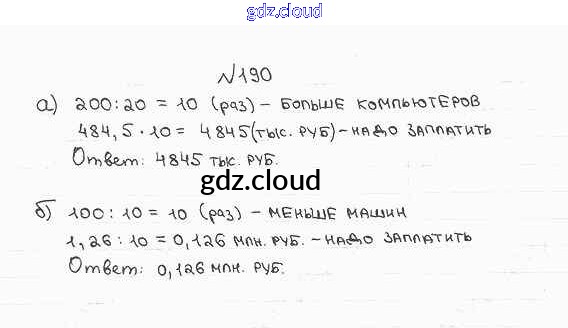 gdz.cloud
№190
а) 200:20 = 10 (раз) - больше компьютеров
484,5·10 = 4845(тыс. руб) - надо заплатить
Ответ: 4845 тыс. руб.
gdz.cloud
б) 100:10 = 10 (раз) - меньше машин
1,26:10 = 0,126 млн. руб. - надо заплатить
Ответ: 0,126 млн. руб.